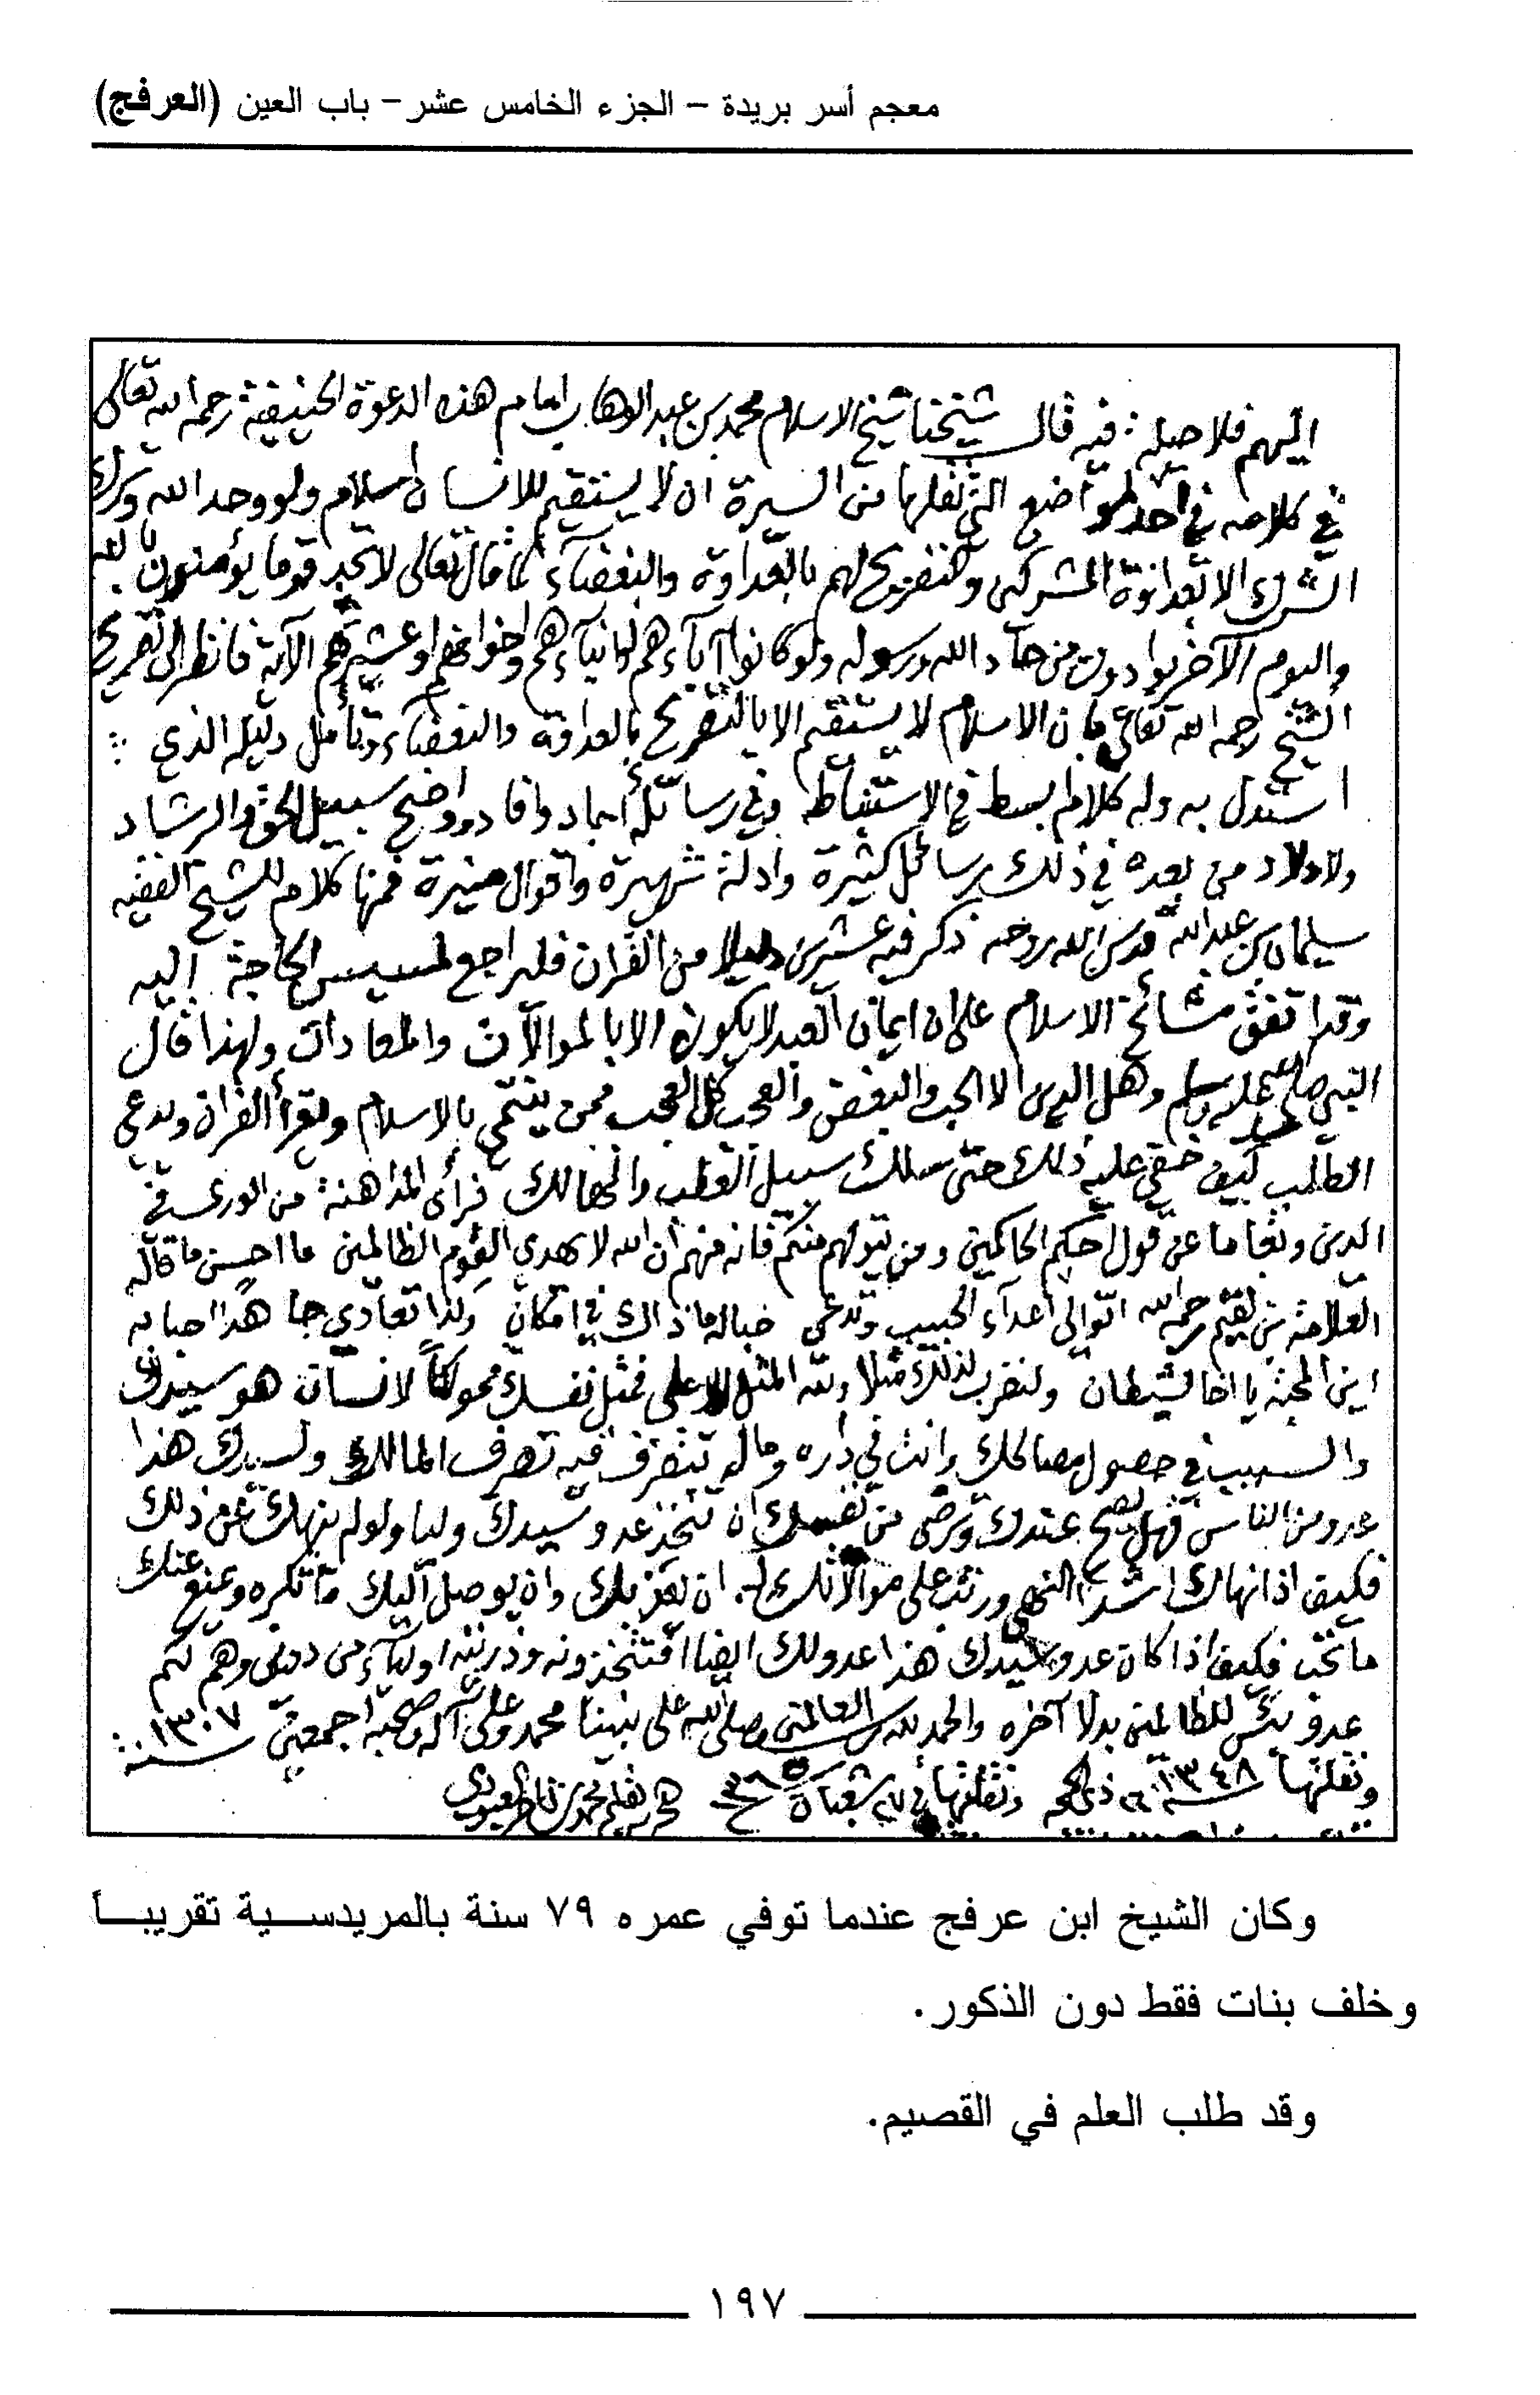 معجم أسر بريدة – الجزء الخامس عشر – باب العين (العرفج)
اليهم فلا حيلة فيه قال شيخنا شيخ الاسلام محمد بن عبد الوهاب امام هذه الدعوة الحنيفية رحمه الله تعالى
في كلامه في احد المواضع التي نقلها من السيرة ان لا يستقيم للانسان اسلام ولو وحد الله وترك
الشرك الا بعداوة المشركين والتصريح لهم بالعداوة والبغضاء كما قال تعالى لا تجد قوما يؤمنون بالله
واليوم الآخر يوادون من حاد الله ورسوله ولو كانوا آباءهم او ابناءهم او اخوانهم او عشيرتهم الآية فانظر الى تصريح
الشيخ رحمه الله تعالى بان الاسلام لا يستقيم الا بالتصريح بالعداوة والبغضاء وتأمل دليله الذي
استدل به وله كلام ابسط في الاستنباط وفي رسائله أجاد وافاد واوضح سبيل الحق والرشاد
ولاولاد من بعده في ذلك رسائل كثيرة وادلة شهيرة واقوال منيرة فمنها كلام للشيخ الفقيه
سليمان بن عبد الله قدس الله روحه ذكر فيه عشرين دليلا من القرآن فليراجع لمسيس الحاجة اليه
وقد اتفق مشائخ الاسلام على ان ايمان العبد لا يكون الا بالموالات والمعادات ولهذا قال
النبي صلى الله عليه وسلم وهل الدين الا الحب والبغض والعجب كل العجب ممن ينتمي بالاسلام ويقرأ القرآن ويدعي
الطلب كيف خفي عليه ذلك حتى سلك سبيل العطب والمهالك فرأى المداهنة من الورع في
الدين وتعاما عن قول احكم الحاكمين ومن يتولهم منكم فانه منهم ان الله لا يهدي القوم الظالمين ما احسن ما قاله
العلامة بن القيم رحمه الله اتوالي اعداء الحبيب وتدعي حبا له ما ذاك في امكان وكذا تعادي جاهدا احبابه
اين المحبة يا اخا الشيطان ولنضرب لذلك مثلا ولله المثل الاعلى فمثل نفسك مملوكاً لانسان هو سيدك
والسبب في حصول مصالحك وانت في داره وماله تتصرف فيه تصرف المالك ولسيدك هذا
عدو من الناس فهل يصح عندك وترضى من نفسك ان تتخذ عدو سيدك وليا ولو لم ينهاك عن ذلك
فكيف اذا نهاك اشد النهي ورتب على موالاتك له ان يعذبك وان يوصل اليك ما تكره ويمنع عنك
ما تحب فكيف اذا كان عدو سيدك هذا عدو لك ايضا افتتخذونه وذريته اولياء من دوني وهم لكم
عدو بئس للظالمين بدلا آخره والحمد لله رب العالمين وصلى الله على نبينا محمد وعلى آله وصحبه اجمعين سنة ١٣٠٧
ونقلتها سنة ١٣٤٨ ذي الحجه ونقلتها في ٢٧ شعبان
وكان الشيخ ابن عرفج عندما توفي عمره ٧٩ سنة بالمريدسية تقريباً
وخلف بنات فقط دون الذكور.
وقد طلب العلم في القصيم.
١٩٧